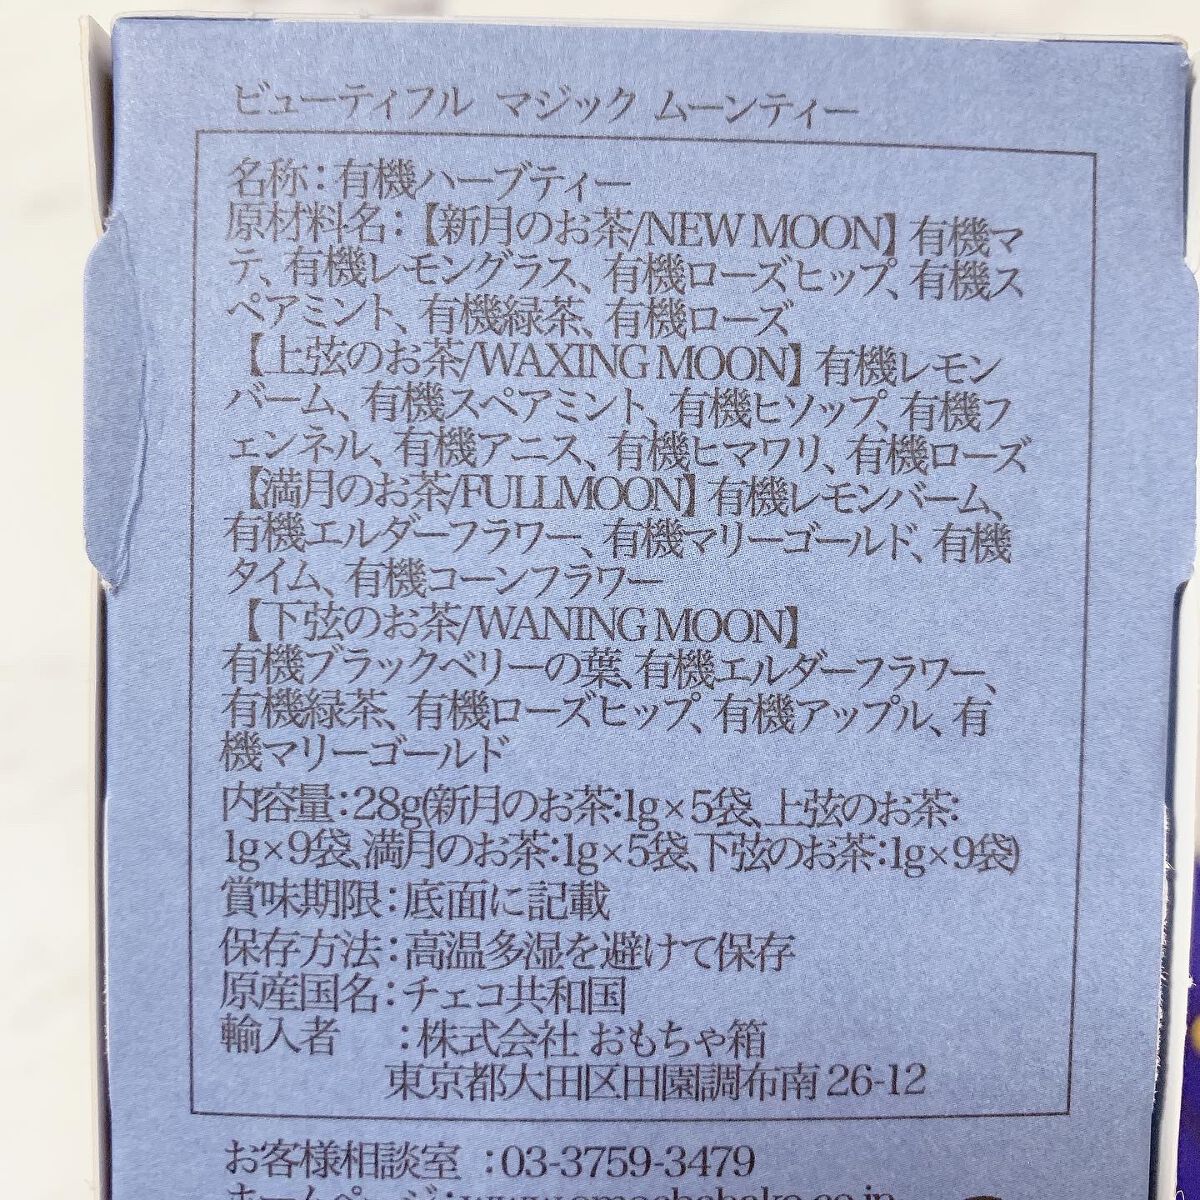 ビューティフル マジック ムーンティー
名称：有機ハーブティー
原材料名：【新月のお茶/NEW MOON】有機マ
テ、有機レモングラス、有機ローズヒップ、有機ス
ペアミント、有機緑茶、有機ローズ
【上弦のお茶/WAXING MOON】有機レモン
バーム、有機スペアミント、有機ヒソップ、有機フ
ェンネル、有機アニス、有機ヒマワリ、有機ローズ
【満月のお茶/FULLMOON】有機レモンバーム、
有機エルダーフラワー、有機マリーゴールド、有機
タイム、有機コーンフラワー
【下弦のお茶/WANING MOON】
有機ブラックベリーの葉、有機エルダーフラワー、
有機緑茶、有機ローズヒップ、有機アップル、有
機マリーゴールド
内容量：28g(新月のお茶：1g×5袋、上弦のお茶：
1g×9袋、満月のお茶：1g×5袋、下弦のお茶：1g×9袋)
賞味期限：底面に記載
保存方法：高温多湿を避けて保存
原産国名：チェコ共和国
輸入者　：株式会社 おもちゃ箱
東京都大田区田園調布南 26-12
お客様相談室　：03-3759-3479
ホームページ：www.omochabako.co.jp